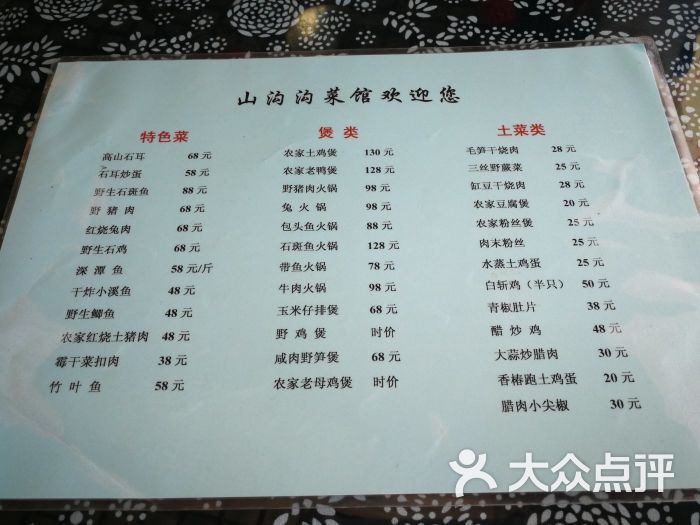 山沟沟菜馆欢迎您
特色菜
高山石耳 68 元
石耳炒蛋 58 元
野生石斑鱼 88 元
野猪肉 68 元
红烧兔肉 68 元
野生石鸡 68 元
深潭鱼 58 元/斤
干炸小溪鱼 48 元
野生鲫鱼 48 元
农家红烧土猪肉 48 元
霉干菜扣肉 38 元
竹叶鱼 58 元
煲类
农家土鸡煲 130 元
农家老鸭煲 128 元
野猪肉火锅 98 元
兔火锅 98 元
包头鱼火锅 88 元
石斑鱼火锅 128 元
带鱼火锅 78 元
牛肉火锅 98 元
玉米仔排煲 68 元
野鸡煲 时价
咸肉野笋煲 68 元
农家老母鸡煲 时价
土菜类
毛笋干烧肉 28 元
三丝野蕨菜 25 元
缸豆干烧肉 28 元
农家豆腐煲 20 元
农家粉丝煲 25 元
肉末粉丝 25 元
水蒸土鸡蛋 25 元
白斩鸡（半只） 50 元
青椒肚片 38 元
醋炒鸡 48 元
大蒜炒腊肉 30 元
香椿跑土鸡蛋 20 元
腊肉小尖椒 30 元
大众点评